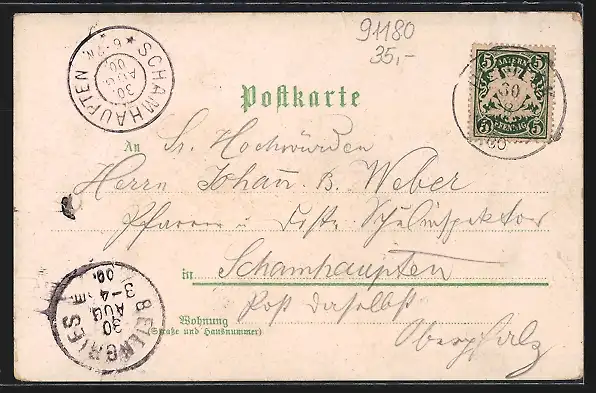 91180
35,-
SCHAMHAUPTEN
30
AUG
00
BAYERN
5 5
5 PFENNIG 5
30
00
Postkarte
An Sr. Hochwürden
Herrn Johann B. Weber
Pfarrer u. Distr. Schulinspektor
in Schamhaupten
Post daselbst
Wohnung
(Straße und Hausnummer)
Oberpfalz
BEILNGRIES
30
AUG
3-4
00.